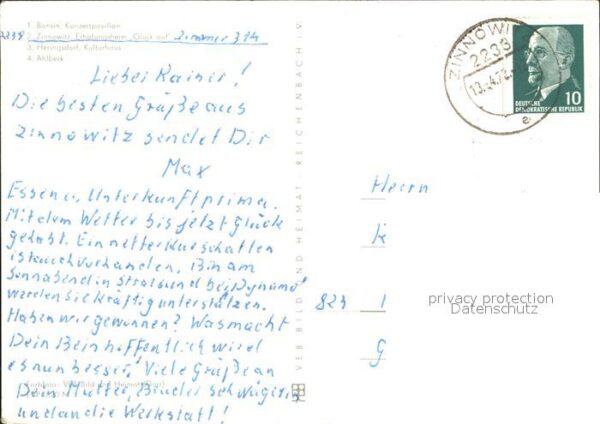 1. Bansin, Konzertpavillon
2238 2. Zinnowitz, Erholungsheim „Glück auf" Zimmer 314
3. Heringsdorf, Kulturhaus
4. Ahlbeck
Lieber Rainer!
Die besten Grüße aus
Zinnowitz sendet Dir
Max
Essen u. Unterkunft prima.
Mit dem Wetter bis jetzt Glück
gehabt. Ein netter Kurschatten
ist auch vorhanden. Bin am
Sonnabend in Stralsund bei „Dynamo"
werden sie kräftig unterstützen.
Haben wir gewonnen? Was macht
Dein Bein hoffentlich wird
es nun besser. Viele Grüße an
Dein Mutter, Bruder Schwägerin
und an die Werkstatt!
VEB BILD UND HEIMAT · REICHENBACH I. V.
ZINNOWITZ
2238
13.-4.72
e
DEUTSCHE
DEMOKRATISCHE REPUBLIK
10
Herrn
R
824 1
G
privacy protection
Datenschutz